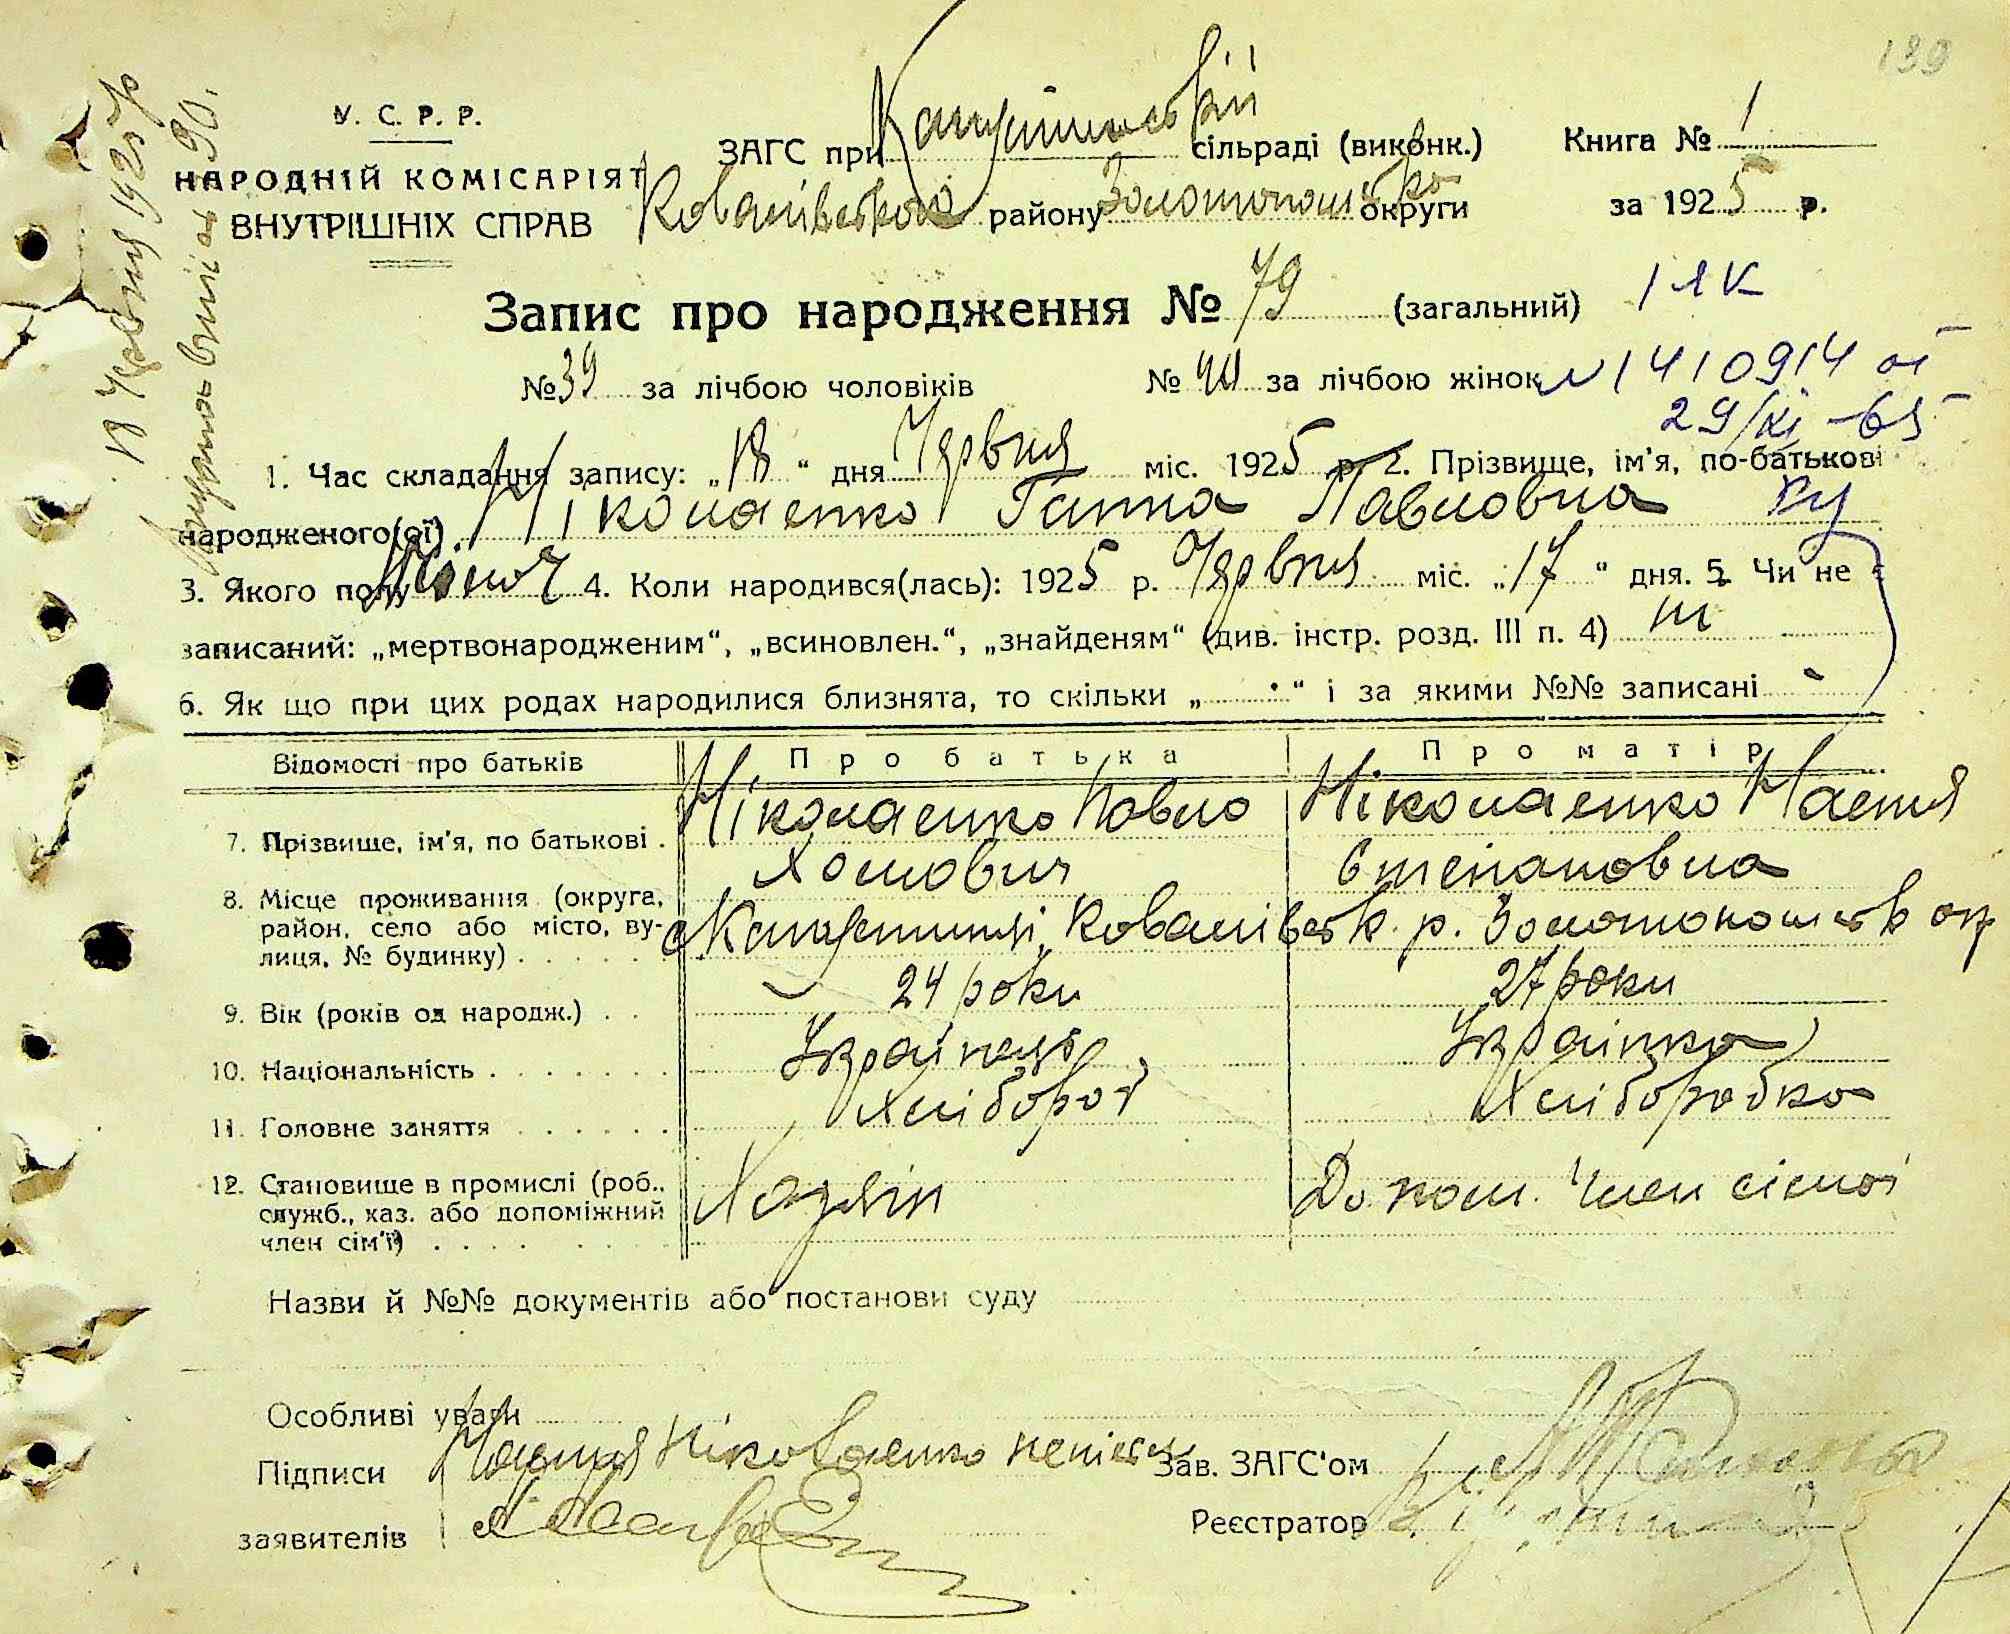 139
У. С. Р. Р.
НАРОДНІЙ КОМІСАРІЯТ
ВНУТРІШНІХ СПРАВ
ЗАГС при Капустинській сільраді (виконк.) Книга № 1
Ковалівського району Золотоніської округи за 1925 р.
Запис про народження № 79 (загальний) 1 ЯК
№ 39 за лічбою чоловіків № 40 за лічбою жінок № 1410914 от
29/XI -65
1. Час складання запису: „18“ дня Червня міс. 1925 р. 2. Прізвище, ім'я, по-батькові
народженого(ої) Ніколаенко Ганна Павловна
3. Якого полу Жіноч 4. Коли народився(лась): 1925 р. Червня міс. „17“ дня. 5. Чи не є
записаний: „мертвонародженим“, „всиновлен.“, „знайденям“ (див. інстр. розд. III п. 4) ні
6. Як що при цих родах народилися близнята, то скільки „ - “ і за якими №№ записані -
Відомості про батьків Про батька Про матір
7. Прізвище, ім'я, по батькові . Ніколаенко Павло Ніколаенко Настя
Хомович Степановна
8. Місце проживання (округа,
район, село або місто, ву-
лиця, № будинку) . . . . . с Капустинці, Ковалівськ. р. Золотоношськ окр
9. Вік (років од народж.) . . 24 роки 27 роки
10. Національність . . . . . . . Українець Українка
11. Головне заняття . . . . . . Хлібороб Хліборобка
12. Становище в промислі (роб.,
служб., хаз. або допоміжний
член сім'ї) . . . . Хазяїн Допом. член сімої
Назви й №№ документів або постанови суду
Особливі уваги
Підписи Настя Ніколаенко непісь Зав. ЗАГС'ом
заявителів Реєстратор
18 Червня 1925 р